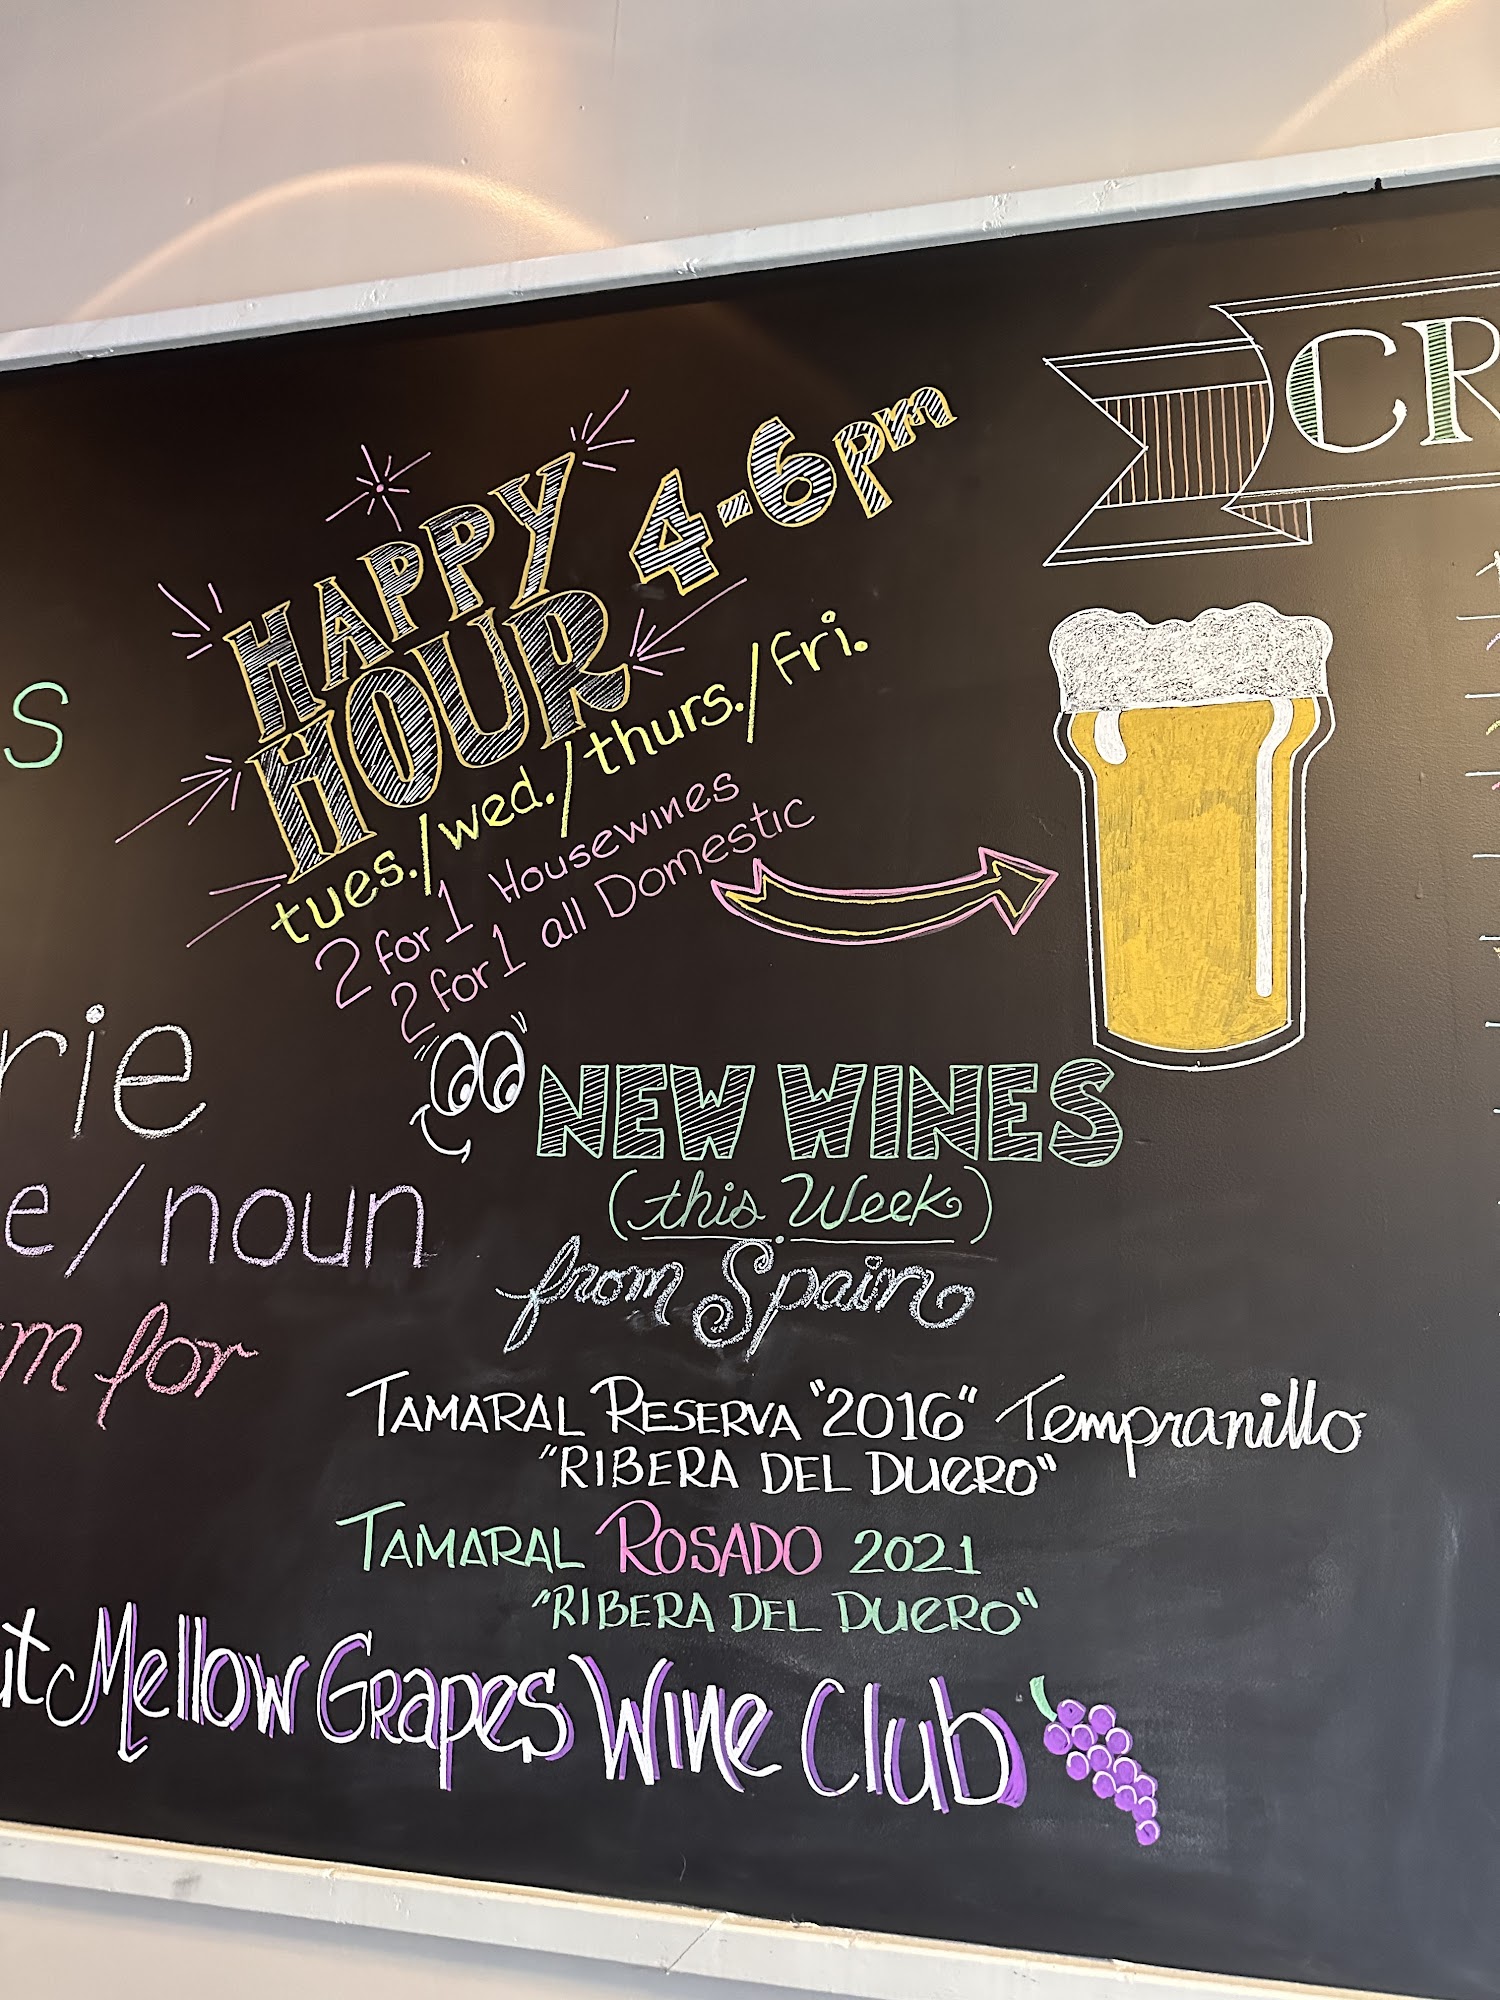 HAPPY
HOUR 4-6pm
tues./wed./thurs./fri.
2 for 1 Housewines
2 for 1 all Domestic
NEW WINES
(this Week)
from Spain
TAMARAL RESERVA "2016" Tempranillo
"RIBERA DEL DUERO"
TAMARAL ROSADO 2021
"RIBERA DEL DUERO"
Mellow Grapes Wine Club
s
rie
e/noun
m for
CR